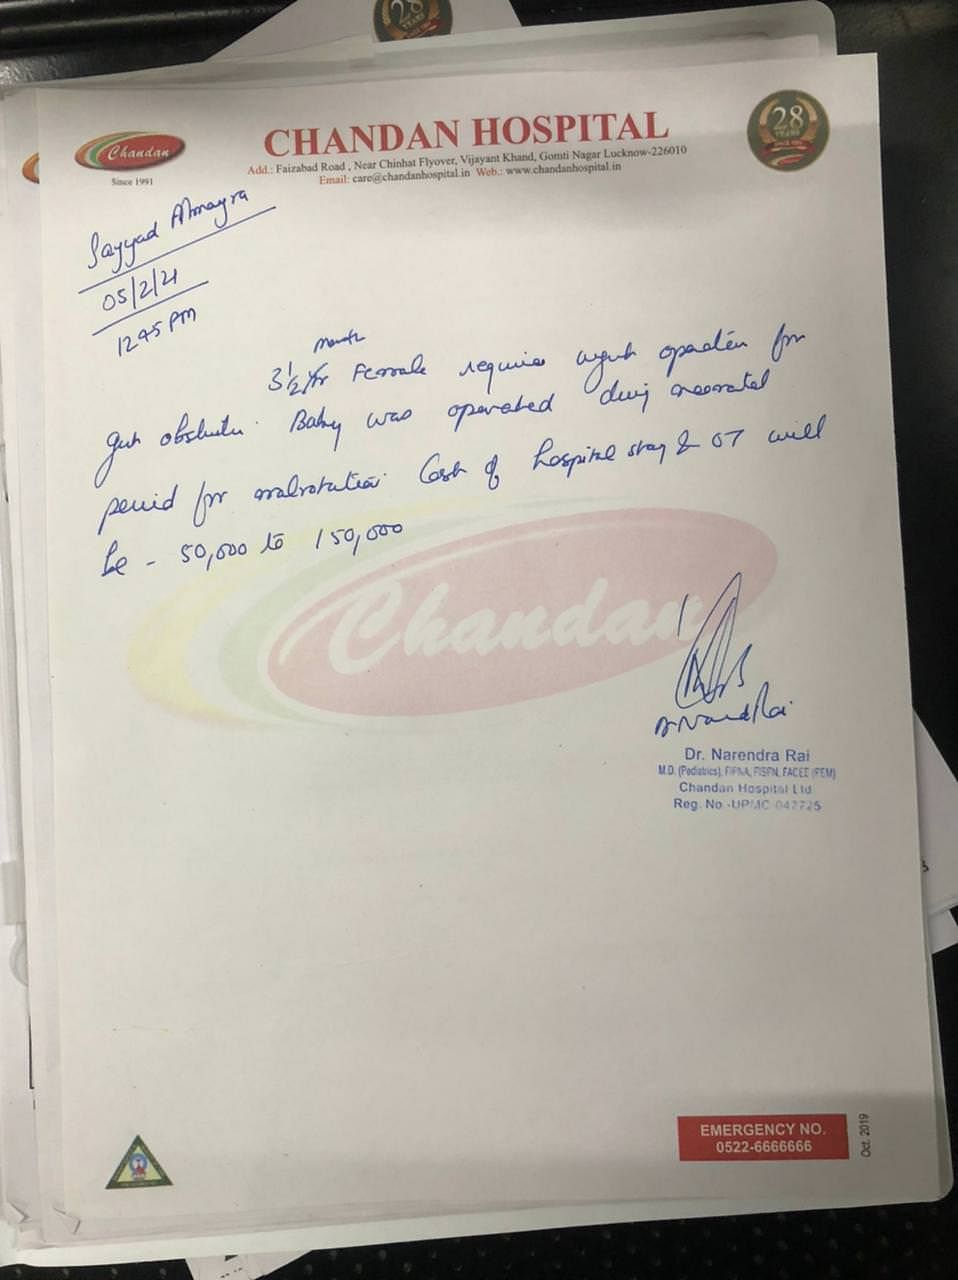 28
YEARS
Chandan
Since 1991
CHANDAN HOSPITAL
Add.: Faizabad Road , Near Chinhat Flyover, Vijayant Khand, Gomti Nagar Lucknow-226010
Email: care@chandanhospital.in Web.: www.chandanhospital.in
28
YEARS
SINCE 1991
Sayyad
05/2/21
1245 PM
month
3½ yr Female requires urgent operation for
gut obstructn. Baby was operated during neonatal
period for malrotation. Cost of hospital stay & OT will
be - 50,000 to 150,000
Chandan
Dr. Narendra Rai
M.D. (Pediatrics),
Chandan Hospital Ltd
Reg. No.-UPMC-042725
EMERGENCY NO.
0522-6666666
Oct. 2019